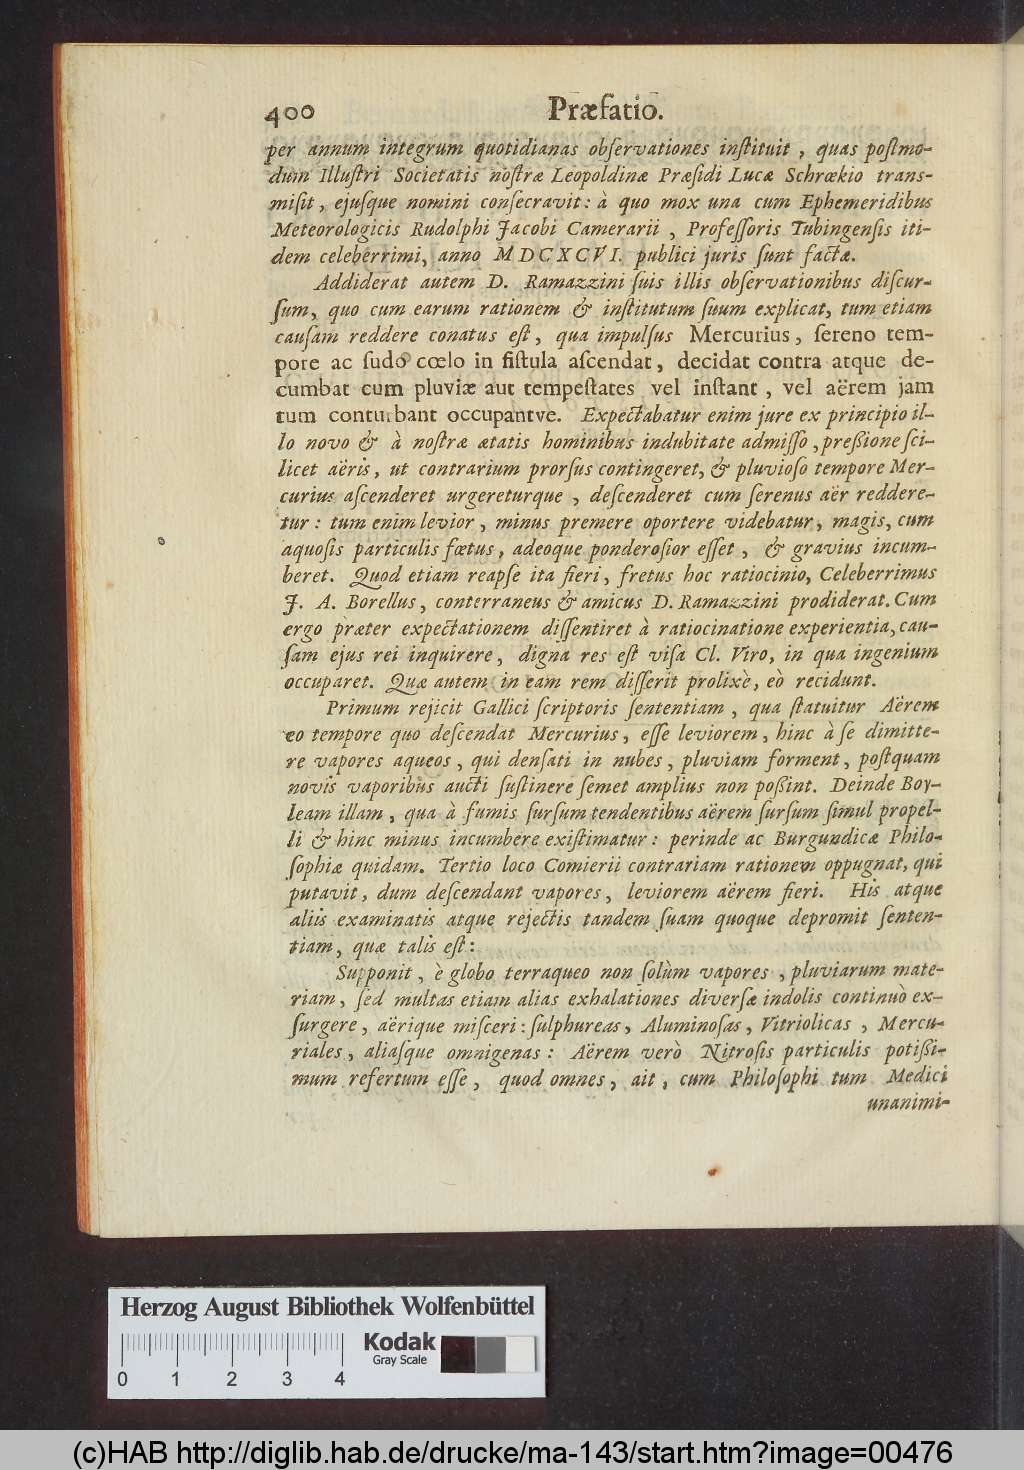 400 Præfatio.
per annum integrum quotidianas obſervationes inſtituit, quas poſtmo-
dum Illuſtri Societatis noſtræ Leopoldinæ Præſidi Lucæ Schrœkio trans-
miſit, ejuſque nomini conſecravit: à quo mox una cum Ephemeridibus
Meteorologicis Rudolphi Jacobi Camerarii, Profeſſoris Tubingenſis iti-
dem celeberrimi, anno MDCXCVI. publici juris ſunt factæ.
Addiderat autem D. Ramazzini ſuis illis obſervationibus diſcur-
ſum, quo cum earum rationem & inſtitutum ſuum explicat, tum etiam
cauſam reddere conatus eſt, qua impulſus Mercurius, ſereno tem-
pore ac ſudo cœlo in fiſtula aſcendat, decidat contra atque de-
cumbat cum pluviæ aut tempeſtates vel inſtant, vel aërem jam
tum conturbant occupantve. Expectabatur enim jure ex principio il-
lo novo & à noſtræ ætatis hominibus indubitate admiſſo, preßione ſci-
licet aëris, ut contrarium prorſus contingeret, & pluvioſo tempore Mer-
curius aſcenderet urgereturque, deſcenderet cum ſerenus aër reddere-
tur: tum enim levior, minus premere oportere videbatur, magis, cum
aquoſis particulis fœtus, adeoque ponderoſior eſſet, & gravius incum-
beret. Quod etiam reapſe ita fieri, fretus hoc ratiocinio, Celeberrimus
J. A. Borellus, conterraneus & amicus D. Ramazzini prodiderat. Cum
ergo præter expectationem diſſentiret à ratiocinatione experientia, cau-
ſam ejus rei inquirere, digna res eſt viſa Cl. Viro, in qua ingenium
occuparet. Quæ autem in eam rem diſſerit prolixè, eò recidunt.
Primum rejicit Gallici ſcriptoris ſententiam, qua ſtatuitur Aërem
eo tempore quo deſcendat Mercurius, eſſe leviorem, hinc à ſe dimitte-
re vapores aqueos, qui denſati in nubes, pluviam forment, poſtquam
novis vaporibus aucti ſuſtinere ſemet amplius non poßint. Deinde Boy-
leam illam, qua à fumis ſurſum tendentibus aërem ſurſum ſimul propel-
li & hinc minus incumbere exiſtimatur: perinde ac Burgundicæ Philo-
ſophiæ quidam. Tertio loco Comierii contrariam rationem oppugnat, qui
putavit, dum deſcendant vapores, leviorem aërem fieri. His atque
aliis examinatis atque rejectis tandem ſuam quoque depromit ſenten-
tiam, quæ talis eſt:
Supponit, è globo terraqueo non ſolùm vapores, pluviarum mate-
riam, ſed multas etiam alias exhalationes diverſæ indolis continuò ex-
ſurgere, aërique miſceri: ſulphureas, Aluminoſas, Vitriolicas, Mercu-
riales, aliaſque omnigenas: Aërem verò Nitroſis particulis potißi-
mum refertum eſſe, quod omnes, ait, cum Philoſophi tum Medici
unanimi-
Herzog August Bibliothek Wolfenbüttel
Kodak
Gray Scale
0 1 2 3 4
(c)HAB http://diglib.hab.de/drucke/ma-143/start.htm?image=00476